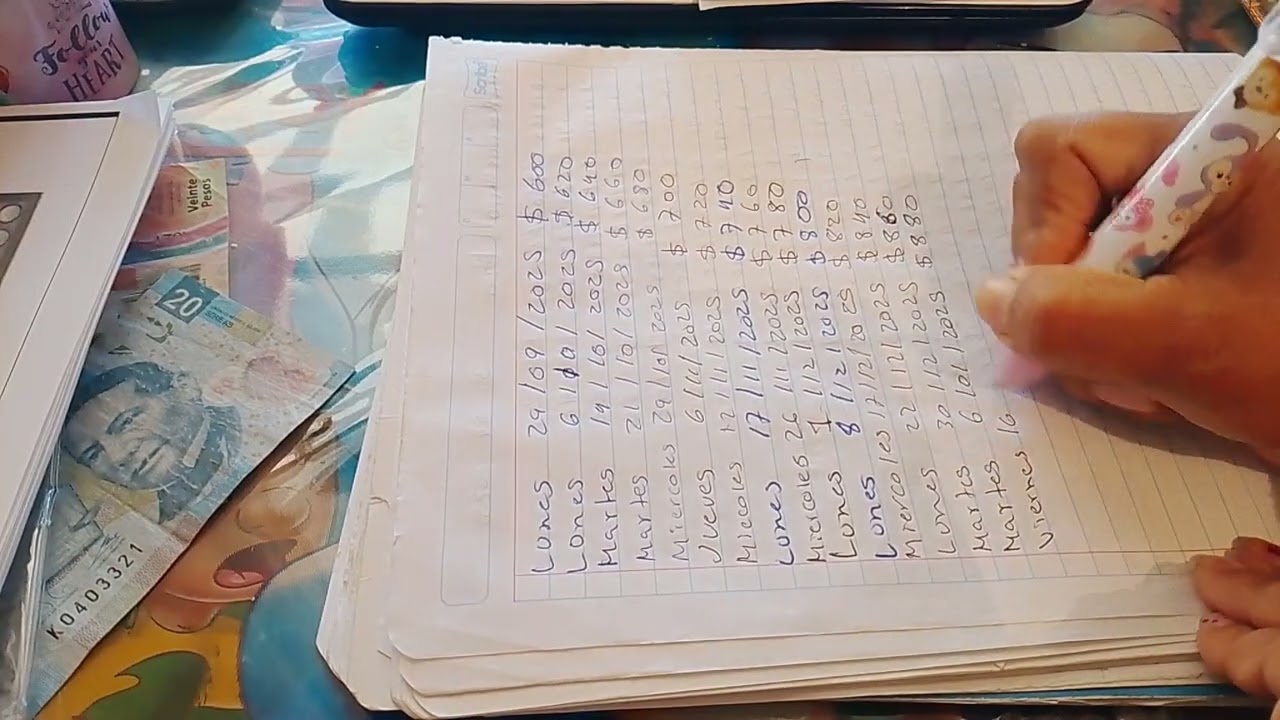 Follow
your
HEART
Veinte
Pesos
20
K0403321
Scribe
Lunes 29/09/2025 $ 600
Lunes 6/10/2025 $ 620
Martes 14/10/2025 $ 640
Martes 21/10/2025 $ 660
Miercoles 29/10/2025 $ 680
Jueves 6/11/2025 $ 700
Miccoles 12/11/2025 $ 720
Lunes 17/11/2025 $ 740
Miercoles 26/11/2025 $ 760
Lunes 1/12/2025 $ 780
Lunes 8/12/2025 $ 800
Miercoles 17/12/2025 $ 820
Lunes 22/12/2025 $ 840
Martes 30/12/2025 $ 860
Martes 6/01/2025 $ 880
Viernes 16